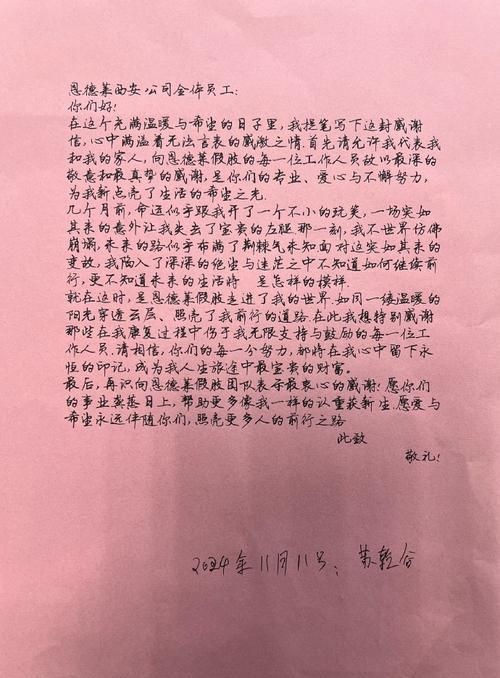 恩德莱西安公司全体员工:
你们好!
在这个充满温暖与希望的日子里,我提笔写下这封感谢
信,心中满溢着无法言表的感激之情.首先请允许我代表我
和我的家人,向恩德莱假肢的每一位工作人员致以最深的
敬意和最真挚的感谢,是你们的专业、爱心与不懈努力,
为我新点亮了生活的希望之光.
几个月前,命运似乎跟我开了一个不小的玩笑,一场突如
其来的意外让我失去了宝贵的左腿那一刻,我不世界仿佛
崩溃,未来的路似乎布满了荆棘气未知面对这突如其来的
变故,我陷入了深深的绝望与迷茫之中不知道如何继续前
行,更不知道未来的生活将 是怎样的模样.
就在这时,是恩德莱假肢走进了我的世界.如同一缕温暖的
阳光穿透云层、照亮了我前行的道路.在此我想特别感谢
那些在我康复过程中伤于我无限支持与鼓励的每一位工
作人员.请相信,你们的每一分努力,都将在我心中留下永
恒的印记,成为我人生旅途中最宝贵的财富.
最后,再识向恩德莱假肢团队表示最衷心的感谢!愿你们
的事业蒸蒸日上,帮助更多像我一样的认重获新生.愿爱与
希望永远伴随你们,照亮更多人的前行之路
此致
敬礼!
2024年11月11号:苏乾合